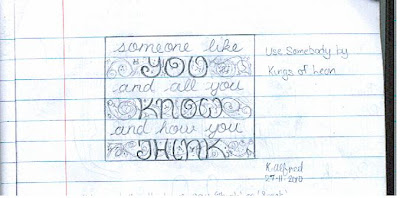 someone like
YOU
and all you
KNOW
and how you
THINK
Use Somebody by
Kings of Leon
27-11-2010